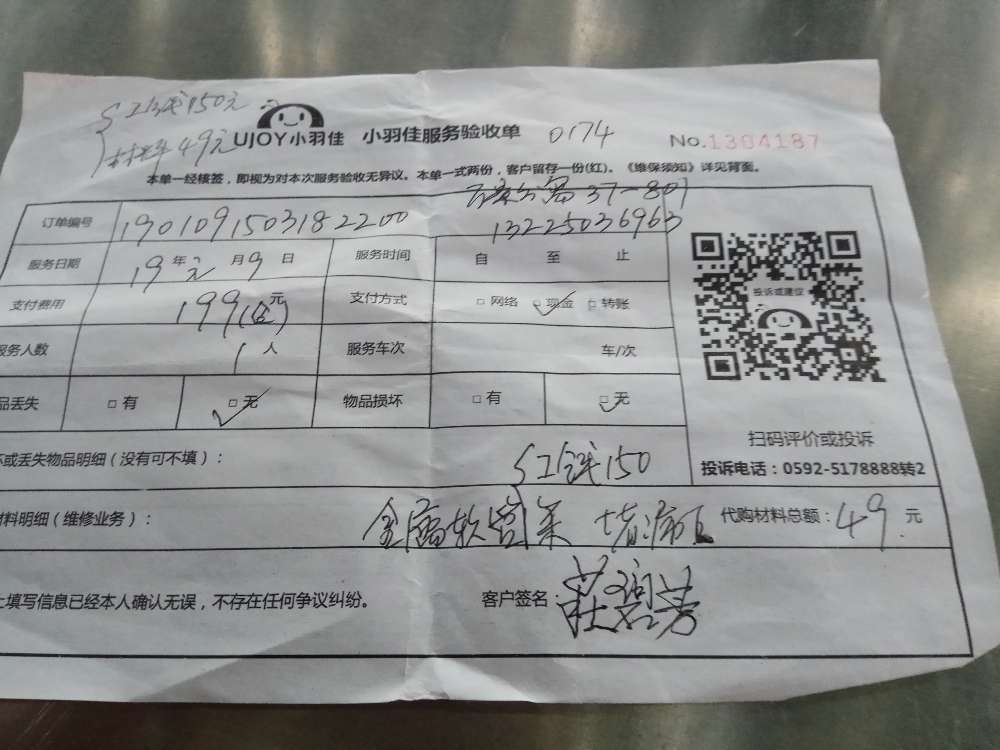 工钱150元
材料49元
UJOY小羽佳 小羽佳服务验收单 0174 No.1304187
本单一经核签，即视为对本次服务验收无异议。本单一式两份，客户留存一份(红)。《维保须知》详见背面。
37-807
订单编号 190109150318 2200 13225036963
服务日期 19年元月9日 服务时间 自 至 止
支付费用 199元 支付方式 □网络 □现金 □转账
服务人数 1人 服务车次 车/次
品丢失 □有 □无 物品损坏 □有 □无
投诉或建议
扫码评价或投诉
投诉电话：0592-5178888转2
坏或丢失物品明细（没有可不填）： 工钱150
材料明细（维修业务）： 金属软管1条 堵漏 代购材料总额：49元
上填写信息已经本人确认无误，不存在任何争议纠纷。 客户签名：